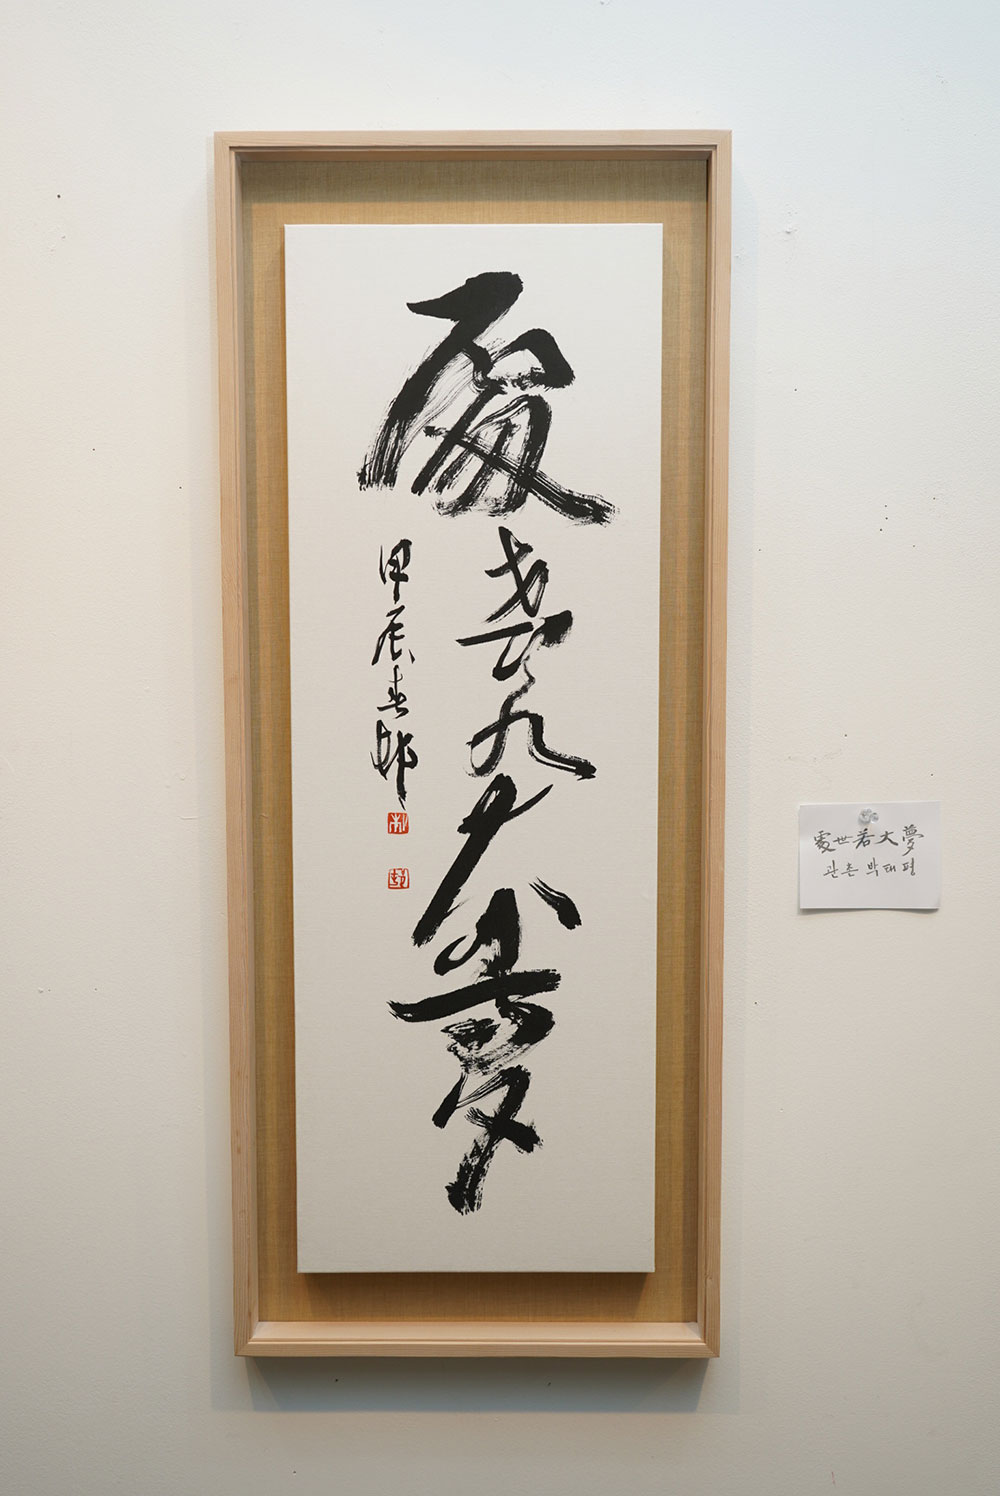 處世若大夢
甲辰春邨
處世若大夢
관촌 박태평